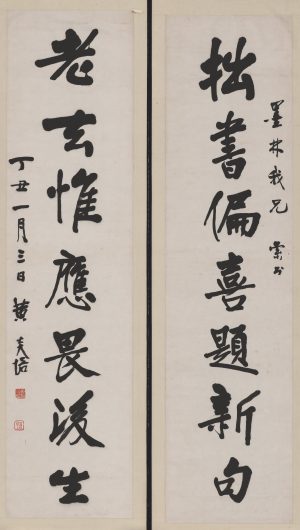 墨林我兄 索书
拙書偏喜題新句
老去惟應畏後生
丁丑一月三日 黃炎培